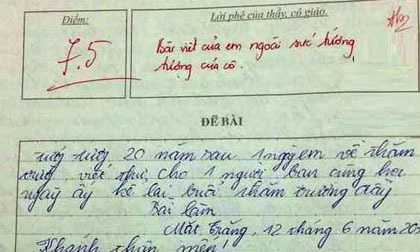 Điểm:
Lời phê của thầy, cô giáo.
7.5
Bài viết của em ngoài sức tưởng
tượng của cô.
ĐỀ BÀI
20 năm sau 1 ngày em về thăm
trường, viết thư cho 1 người bạn cùng học
ngày ấy kể lại buổi thăm trường đầy
Bài làm
Mặt Trăng, 12 tháng 6 năm 20
Khánh thân mến!